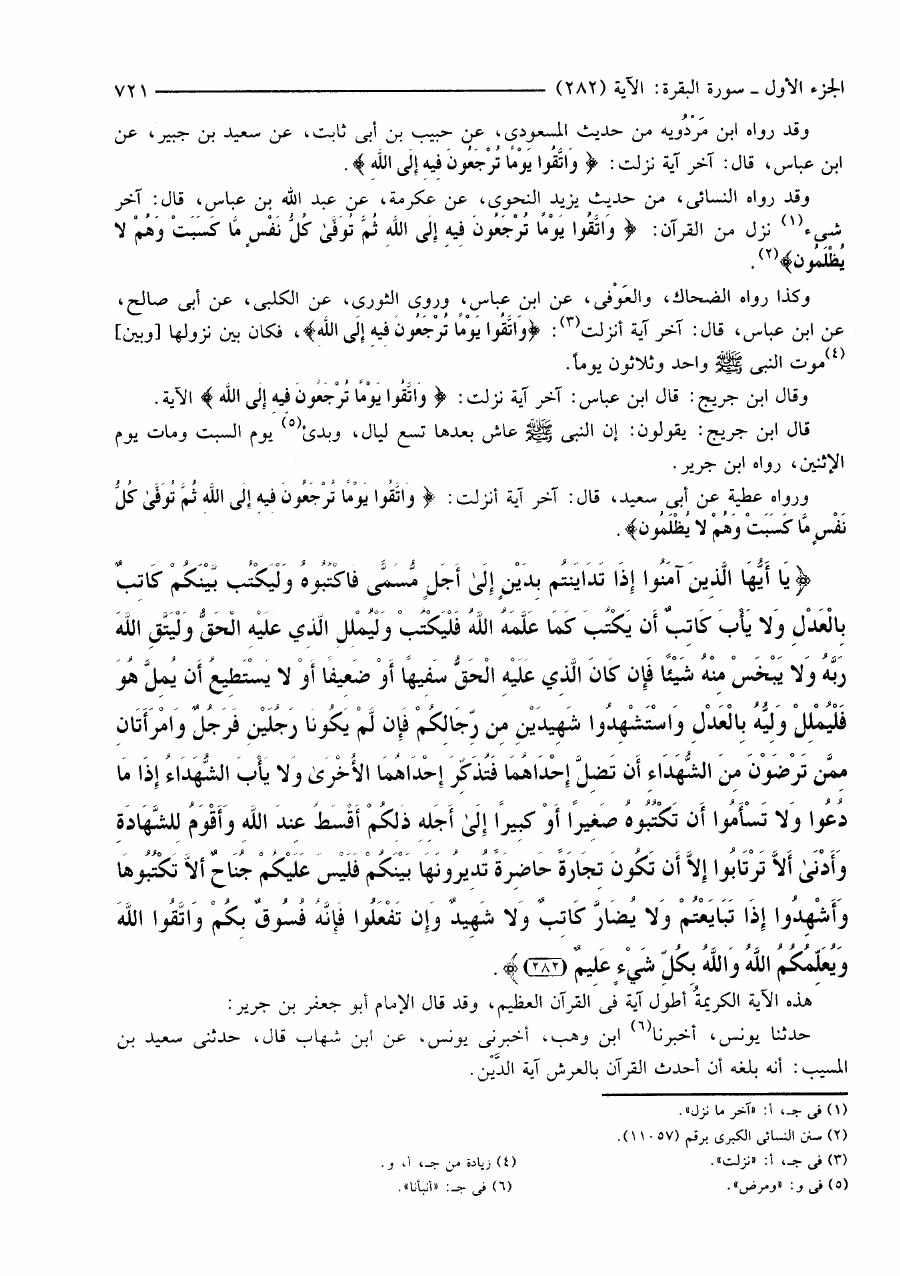 الجزء الأول ـ سورة البقرة: الآية (٢٨٢) ٧٢١
وقد رواه ابن مَرْدُويه من حديث المسعودى، عن حبيب بن أبى ثابت، عن سعيد بن جبير، عن
ابن عباس، قال: آخر آية نزلت: ﴿ وَاتَّقُوا يَوْمًا تُرْجَعُونَ فِيهِ إِلَى اللَّهِ ﴾.
وقد رواه النسائى، من حديث يزيد النحوى، عن عكرمة، عن عبد الله بن عباس، قال: آخر
شىء(١) نزل من القرآن: ﴿ وَاتَّقُوا يَوْمًا تُرْجَعُونَ فِيهِ إِلَى اللَّهِ ثُمَّ تُوَفَّىٰ كُلُّ نَفْسٍ مَّا كَسَبَتْ وَهُمْ لا
يُظْلَمُون﴾(٢).
وكذا رواه الضحاك، والعَوْفى، عن ابن عباس، وروى الثورى، عن الكلبى، عن أبى صالح،
عن ابن عباس، قال: آخر آية أنزلت(٣): ﴿وَاتَّقُوا يَوْمًا تُرْجَعُونَ فِيهِ إِلَى اللَّهِ﴾، فكان بين نزولها [وبين]
(٤)موت النبى ﷺ واحد وثلاثون يوماً.
وقال ابن جريج: قال ابن عباس: آخر آية نزلت: ﴿ وَاتَّقُوا يَوْمًا تُرْجَعُونَ فِيهِ إِلَى اللَّهِ ﴾ الآية.
قال ابن جريج: يقولون: إن النبى ﷺ عاش بعدها تسع ليال، وبدئ(٥) يوم السبت ومات يوم
الإثنين، رواه ابن جرير.
ورواه عطية عن أبى سعيد، قال: آخر آية أنزلت: ﴿ وَاتَّقُوا يَوْمًا تُرْجَعُونَ فِيهِ إِلَى اللَّهِ ثُمَّ تُوَفَّىٰ كُلُّ
نَفْسٍ مَّا كَسَبَتْ وَهُمْ لا يُظْلَمُون﴾.
﴿يَا أَيُّهَا الَّذِينَ آمَنُوا إِذَا تَدَايَنتُم بِدَيْنٍ إِلَىٰ أَجَلٍ مُّسَمًّى فَاكْتُبُوهُ وَلْيَكْتُب بَّيْنَكُمْ كَاتِبٌ
بِالْعَدْلِ وَلا يَأْبَ كَاتِبٌ أَن يَكْتُبَ كَمَا عَلَّمَهُ اللَّهُ فَلْيَكْتُبْ وَلْيُمْلِلِ الَّذِي عَلَيْهِ الْحَقُّ وَلْيَتَّقِ اللَّهَ
رَبَّهُ وَلا يَبْخَسْ مِنْهُ شَيْئًا فَإِن كَانَ الَّذِي عَلَيْهِ الْحَقُّ سَفِيهًا أَوْ ضَعِيفًا أَوْ لا يَسْتَطِيعُ أَن يُمِلَّ هُوَ
فَلْيُمْلِلْ وَلِيُّهُ بِالْعَدْلِ وَاسْتَشْهِدُوا شَهِيدَيْنِ مِن رِّجَالِكُمْ فَإِن لَّمْ يَكُونَا رَجُلَيْنِ فَرَجُلٌ وَامْرَأَتَانِ
مِمَّن تَرْضَوْنَ مِنَ الشُّهَدَاءِ أَن تَضِلَّ إِحْدَاهُمَا فَتُذَكِّرَ إِحْدَاهُمَا الأُخْرَىٰ وَلا يَأْبَ الشُّهَدَاءُ إِذَا مَا
دُعُوا وَلا تَسْأَمُوا أَن تَكْتُبُوهُ صَغِيرًا أَوْ كَبِيرًا إِلَىٰ أَجَلِهِ ذَلِكُمْ أَقْسَطُ عِندَ اللَّهِ وَأَقْوَمُ لِلشَّهَادَةِ
وَأَدْنَىٰ أَلاَّ تَرْتَابُوا إِلاَّ أَن تَكُونَ تِجَارَةً حَاضِرَةً تُدِيرُونَهَا بَيْنَكُمْ فَلَيْسَ عَلَيْكُمْ جُنَاحٌ أَلاَّ تَكْتُبُوهَا
وَأَشْهِدُوا إِذَا تَبَايَعْتُمْ وَلا يُضَارَّ كَاتِبٌ وَلا شَهِيدٌ وَإِن تَفْعَلُوا فَإِنَّهُ فُسُوقٌ بِكُمْ وَاتَّقُوا اللَّهَ
وَيُعَلِّمُكُمُ اللَّهُ وَاللَّهُ بِكُلِّ شَيْءٍ عَلِيمٌ (٢٨٢)﴾.
هذه الآية الكريمةُ أطول آية فى القرآن العظيم، وقد قال الإمام أبو جعفر بن جرير:
حدثنا يونس، أخبرنا(٦) ابن وهب، أخبرنى يونس، عن ابن شهاب قال، حدثنى سعيد بن
المسيب: أنه بلغه أن أحدث القرآن بالعرش آية الدَّيْن.
(١) فى جـ، أ: «آخر ما نزل».
(٢) سنن النسائى الكبرى برقم (١١٠٥٧).
(٣) فى جـ، أ: «نزلت». (٤) زيادة من جـ، أ، و.
(٥) فى و: «ومرض». (٦) فى جـ: «أنبأنا».